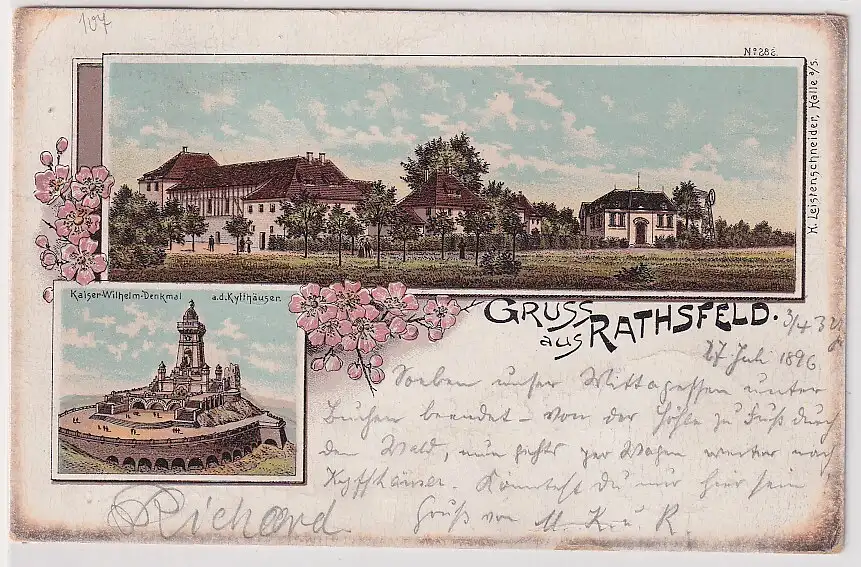 107
No 286.
H. Leistenschneider, Halle a/S.
Kaiser-Wilhelm-Denkmal a.d. Kyffhäuser.
GRUSS
aus RATHSFELD.
3/4 3
27 Juli 1896
Soeben unser Mittagessen unter
Buchen beendet – von der Höhle zu Fuß durch
den Wald, nun gehts per Wagen weiter nach
Kyffhäuser. Könntest du nur hier sein
Gruß von M. K. u. R.
Richard